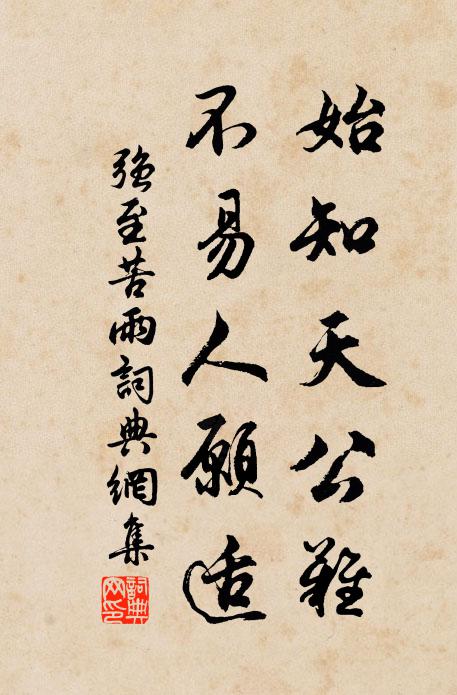 始知天公難
不易人願适
強至苦雨詞典網集
詞典